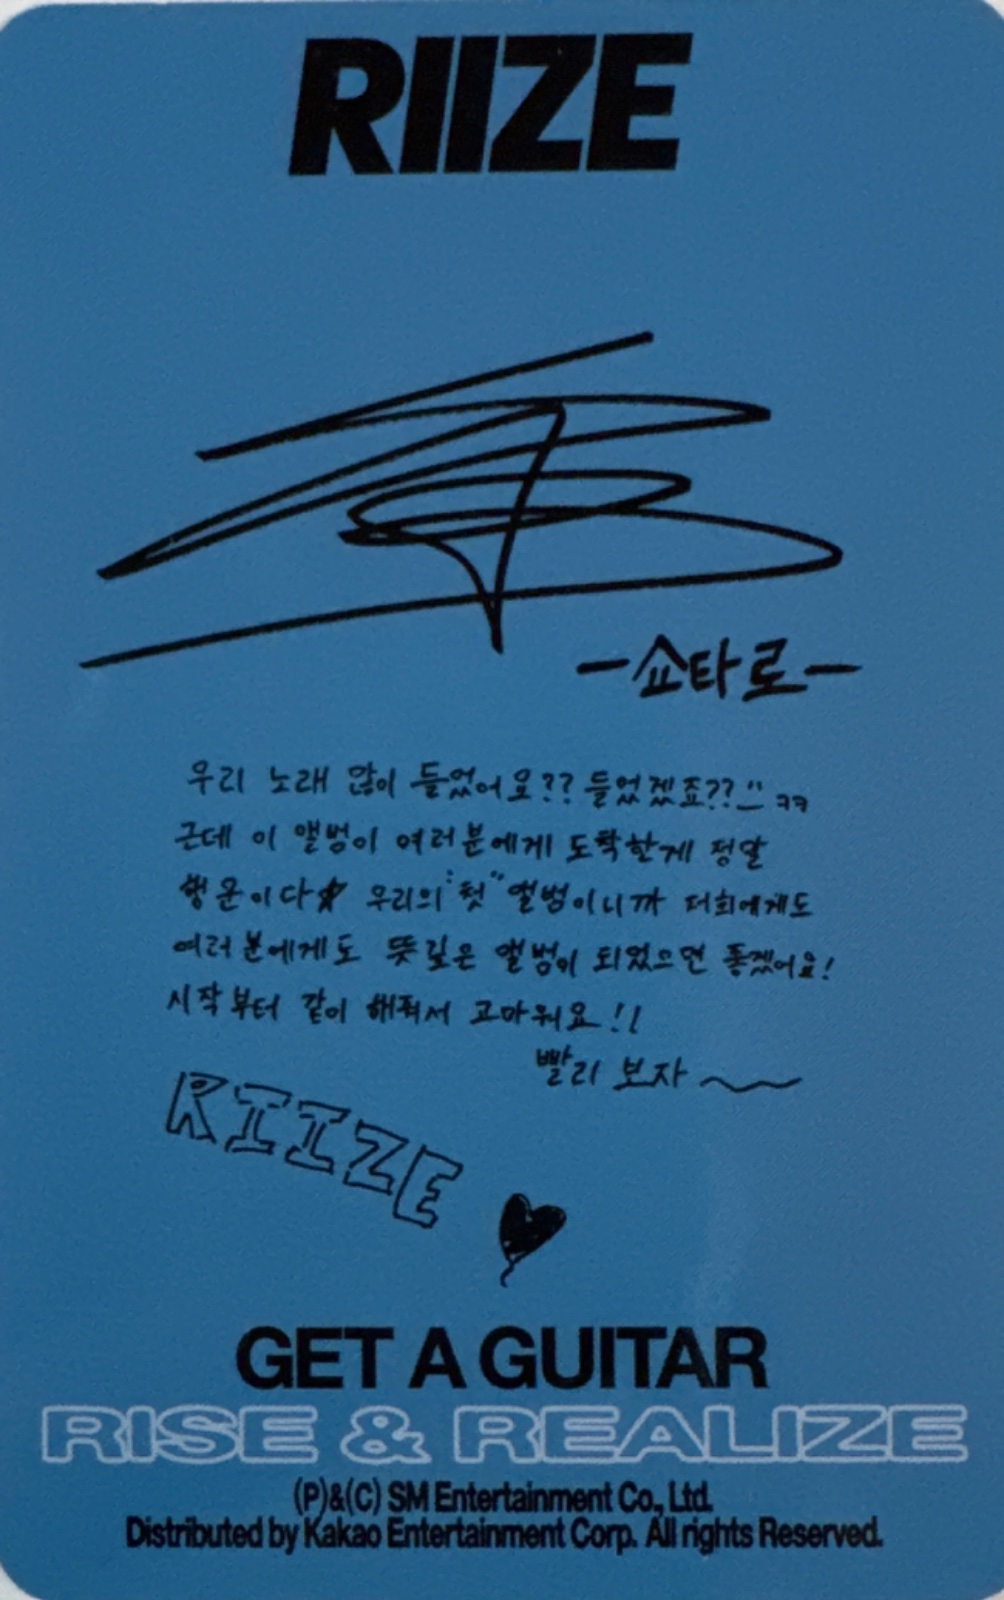 RIIZE
-쇼타로-
우리 노래 많이 들었어요?? 들었겠죠?? ㅋㅋ
근데 이 앨범이 여러분에게 도착한게 정말
행운이다☆ 우리의 "첫" 앨범이니까 저희에게도
여러분에게도 뜻깊은 앨범이 되었으면 좋겠어요!
시작부터 같이 해줘서 고마워요!!
빨리 보자~
RIIZE
GET A GUITAR
RISE & REALIZE
(P)&(C) SM Entertainment Co., Ltd.
Distributed by Kakao Entertainment Corp. All rights Reserved.